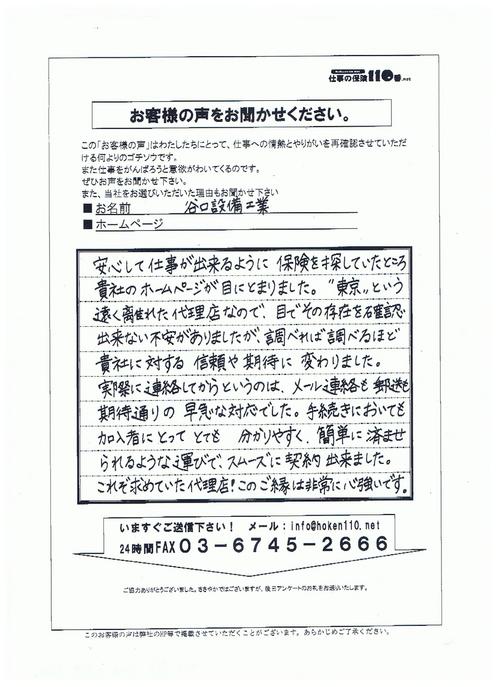 仕事の保険110番.net
お客様の声をお聞かせください。
この「お客様の声」はわたしたちにとって、仕事への情熱とやりがいを再確認させていただ
ける何よりのゴチソウです。
また仕事をがんばろうと意欲がわいてくるのです。
ぜひお声をお聞かせ下さい。
また、当社をお選びいただいた理由もお聞かせ下さい
■お名前 谷口設備工業
■ホームページ
安心して仕事が出来るように 保険を探していたところ
貴社のホームページが目にとまりました。"東京"という
遠く離れた代理店なので、目でその存在を確認
出来ない不安がありましたが、調べれば調べるほど
貴社に対する 信頼や期待に 変わりました。
実際に連絡してからというのは、メール連絡も郵送も
期待通りの 早急な対応でした。手続きにおいても
加入者にとって とても 分かりやすく、簡単に済ませ
られるような運びで、スムーズに契約出来ました。
これぞ求めていた代理店!このご縁は非常に心強いです。
いますぐご送信下さい! メール:info@hoken110.net
24時間FAX03-6745-2666
ご協力ありがとうございました。ささやかではございますが、後日アンケートのお礼をお送りいたします。
このお客様の声は弊社のHP等で掲載させていただくことがございます。あらかじめご了承ください。